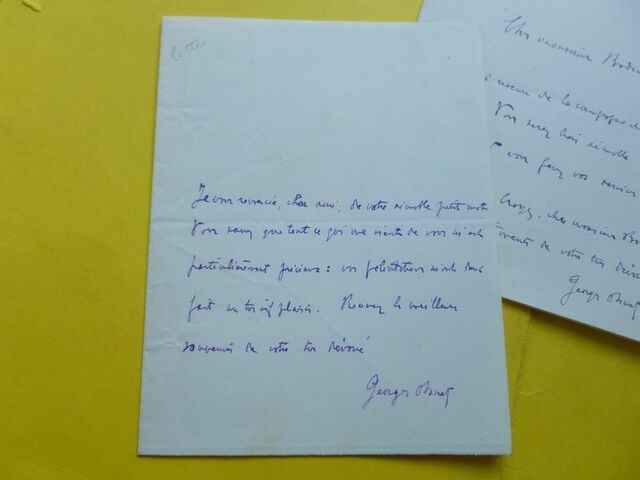 lettre
Je vous remercie, cher ami, de votre aimable petit mot.
Vous savez que tout ce qui me vient de vous m'est
particulièrement précieux : vos félicitations m'ont donc
fait un très vif plaisir. Recevez le meilleur
souvenir de votre très dévoué
Georges Ohnet
Cher monsieur
de la campagne
Vous serez bien aimable
vous
Croyez, cher monsieur
de votre très dévoué
Georges Ohnet